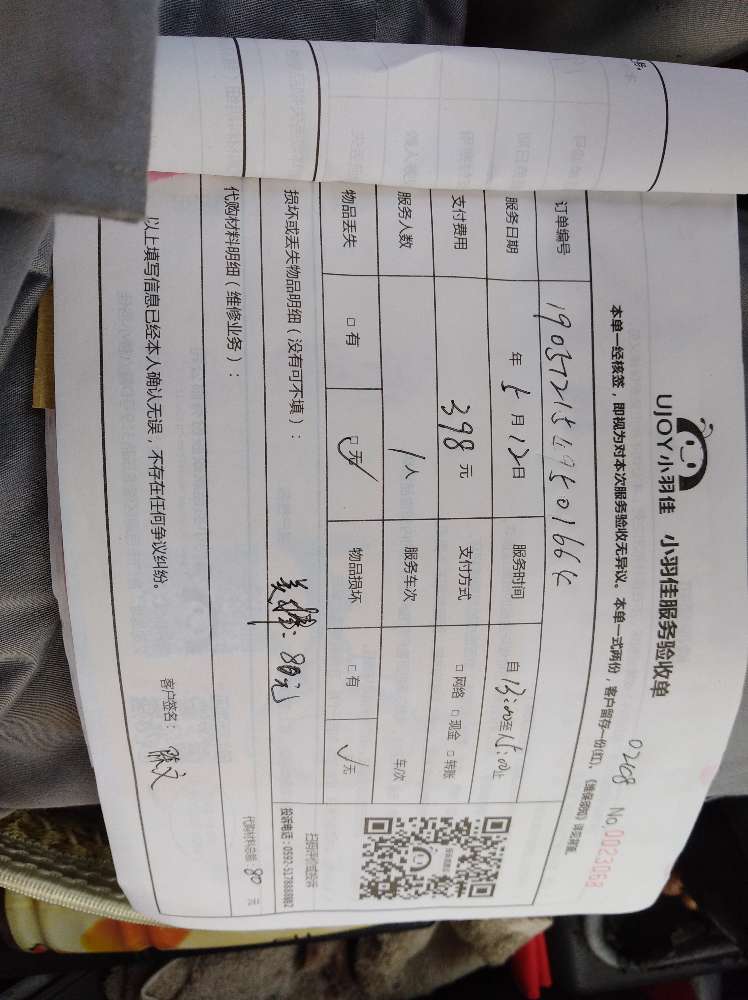 UJOY小羽佳 小羽佳服务验收单
0268 No.0023068
本单一经核签，即视为对本次服务验收无异议。本单一式两份，客户留存一份(红)。《维保须知》详见背面。
订单编号
服务日期 年 5 月 12 日 服务时间 自 13:00 至 15:00 止
支付费用 398 元 支付方式 □ 网络 □ 现金 □ 转账
服务人数 1 人 服务车次 车/次
物品丢失 □ 有 □ 无 物品损坏 □ 有 无
损坏或丢失物品明细（没有可不填）：
80元
扫码评价或投诉
代购材料明细（维修业务）：
代购材料总额 80 元
以上填写信息已经本人确认无误，不存在任何争议纠纷。
客户签名：